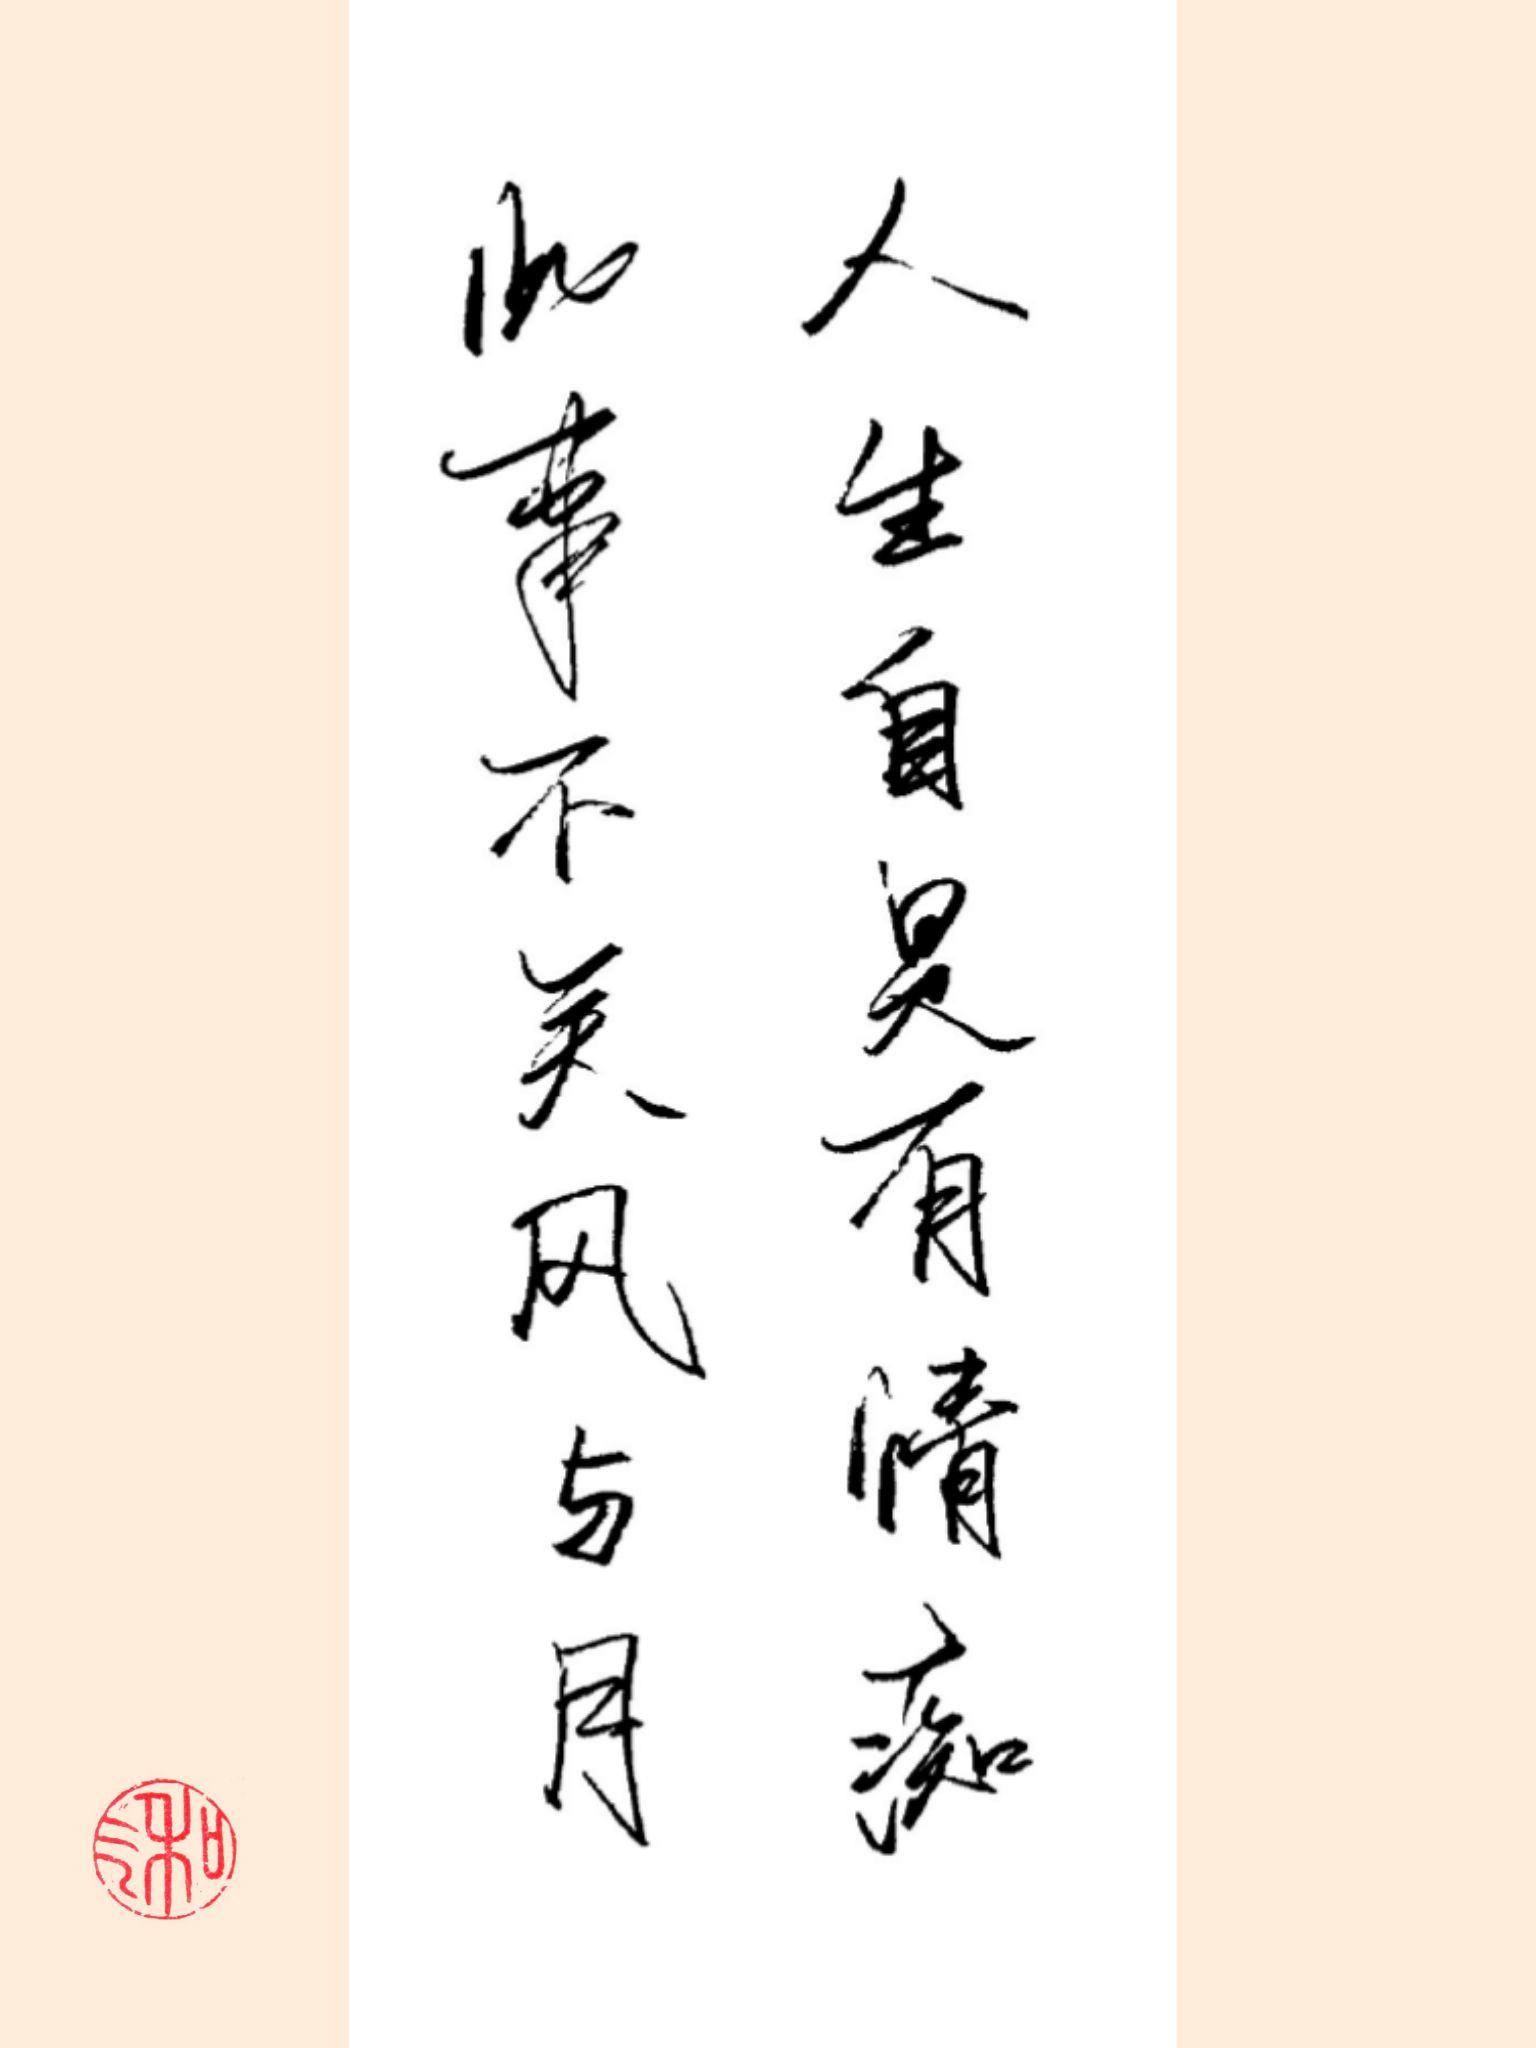 人生自是有情痴
此事不关风与月